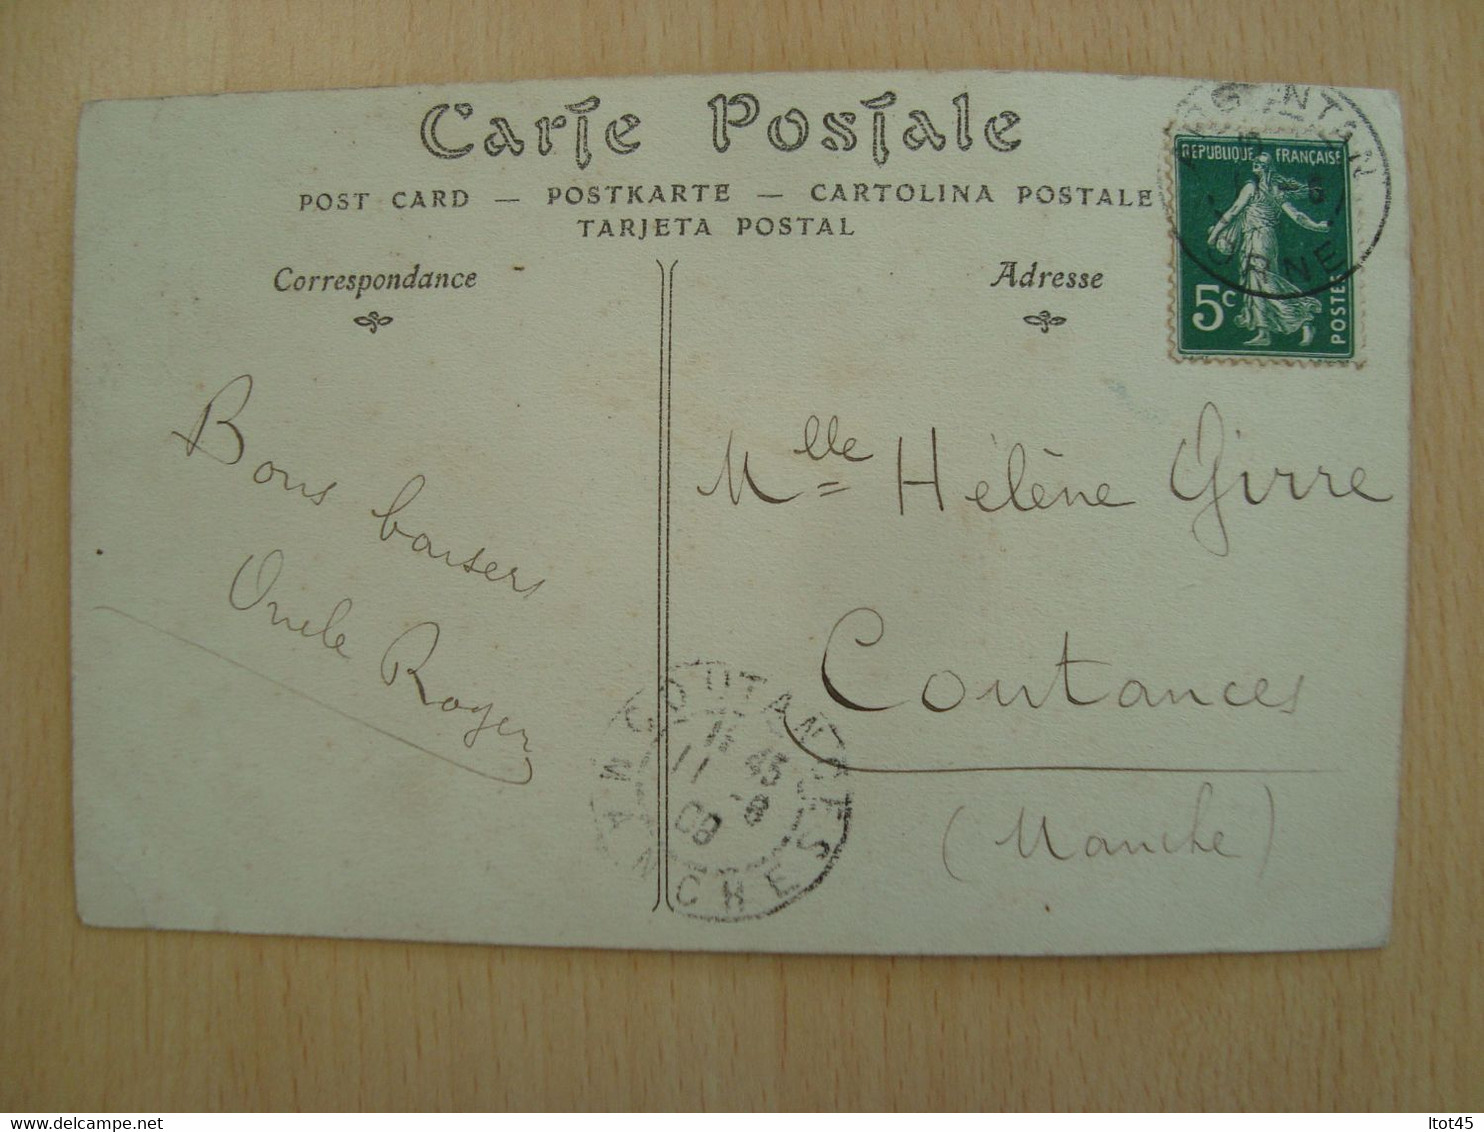 Carte Postale
POST CARD — POSTKARTE — CARTOLINA POSTALE
TARJETA POSTAL
Correspondance
Adresse
REPUBLIQUE FRANÇAISE
5c
POSTES
ORNE
Bons baisers
Oncle Roger
Mlle Hélène Girre
Coutances
(Manche)
COUTANCES
11 45
11 -8
08
MANCHE
delcampe.net
ltot45